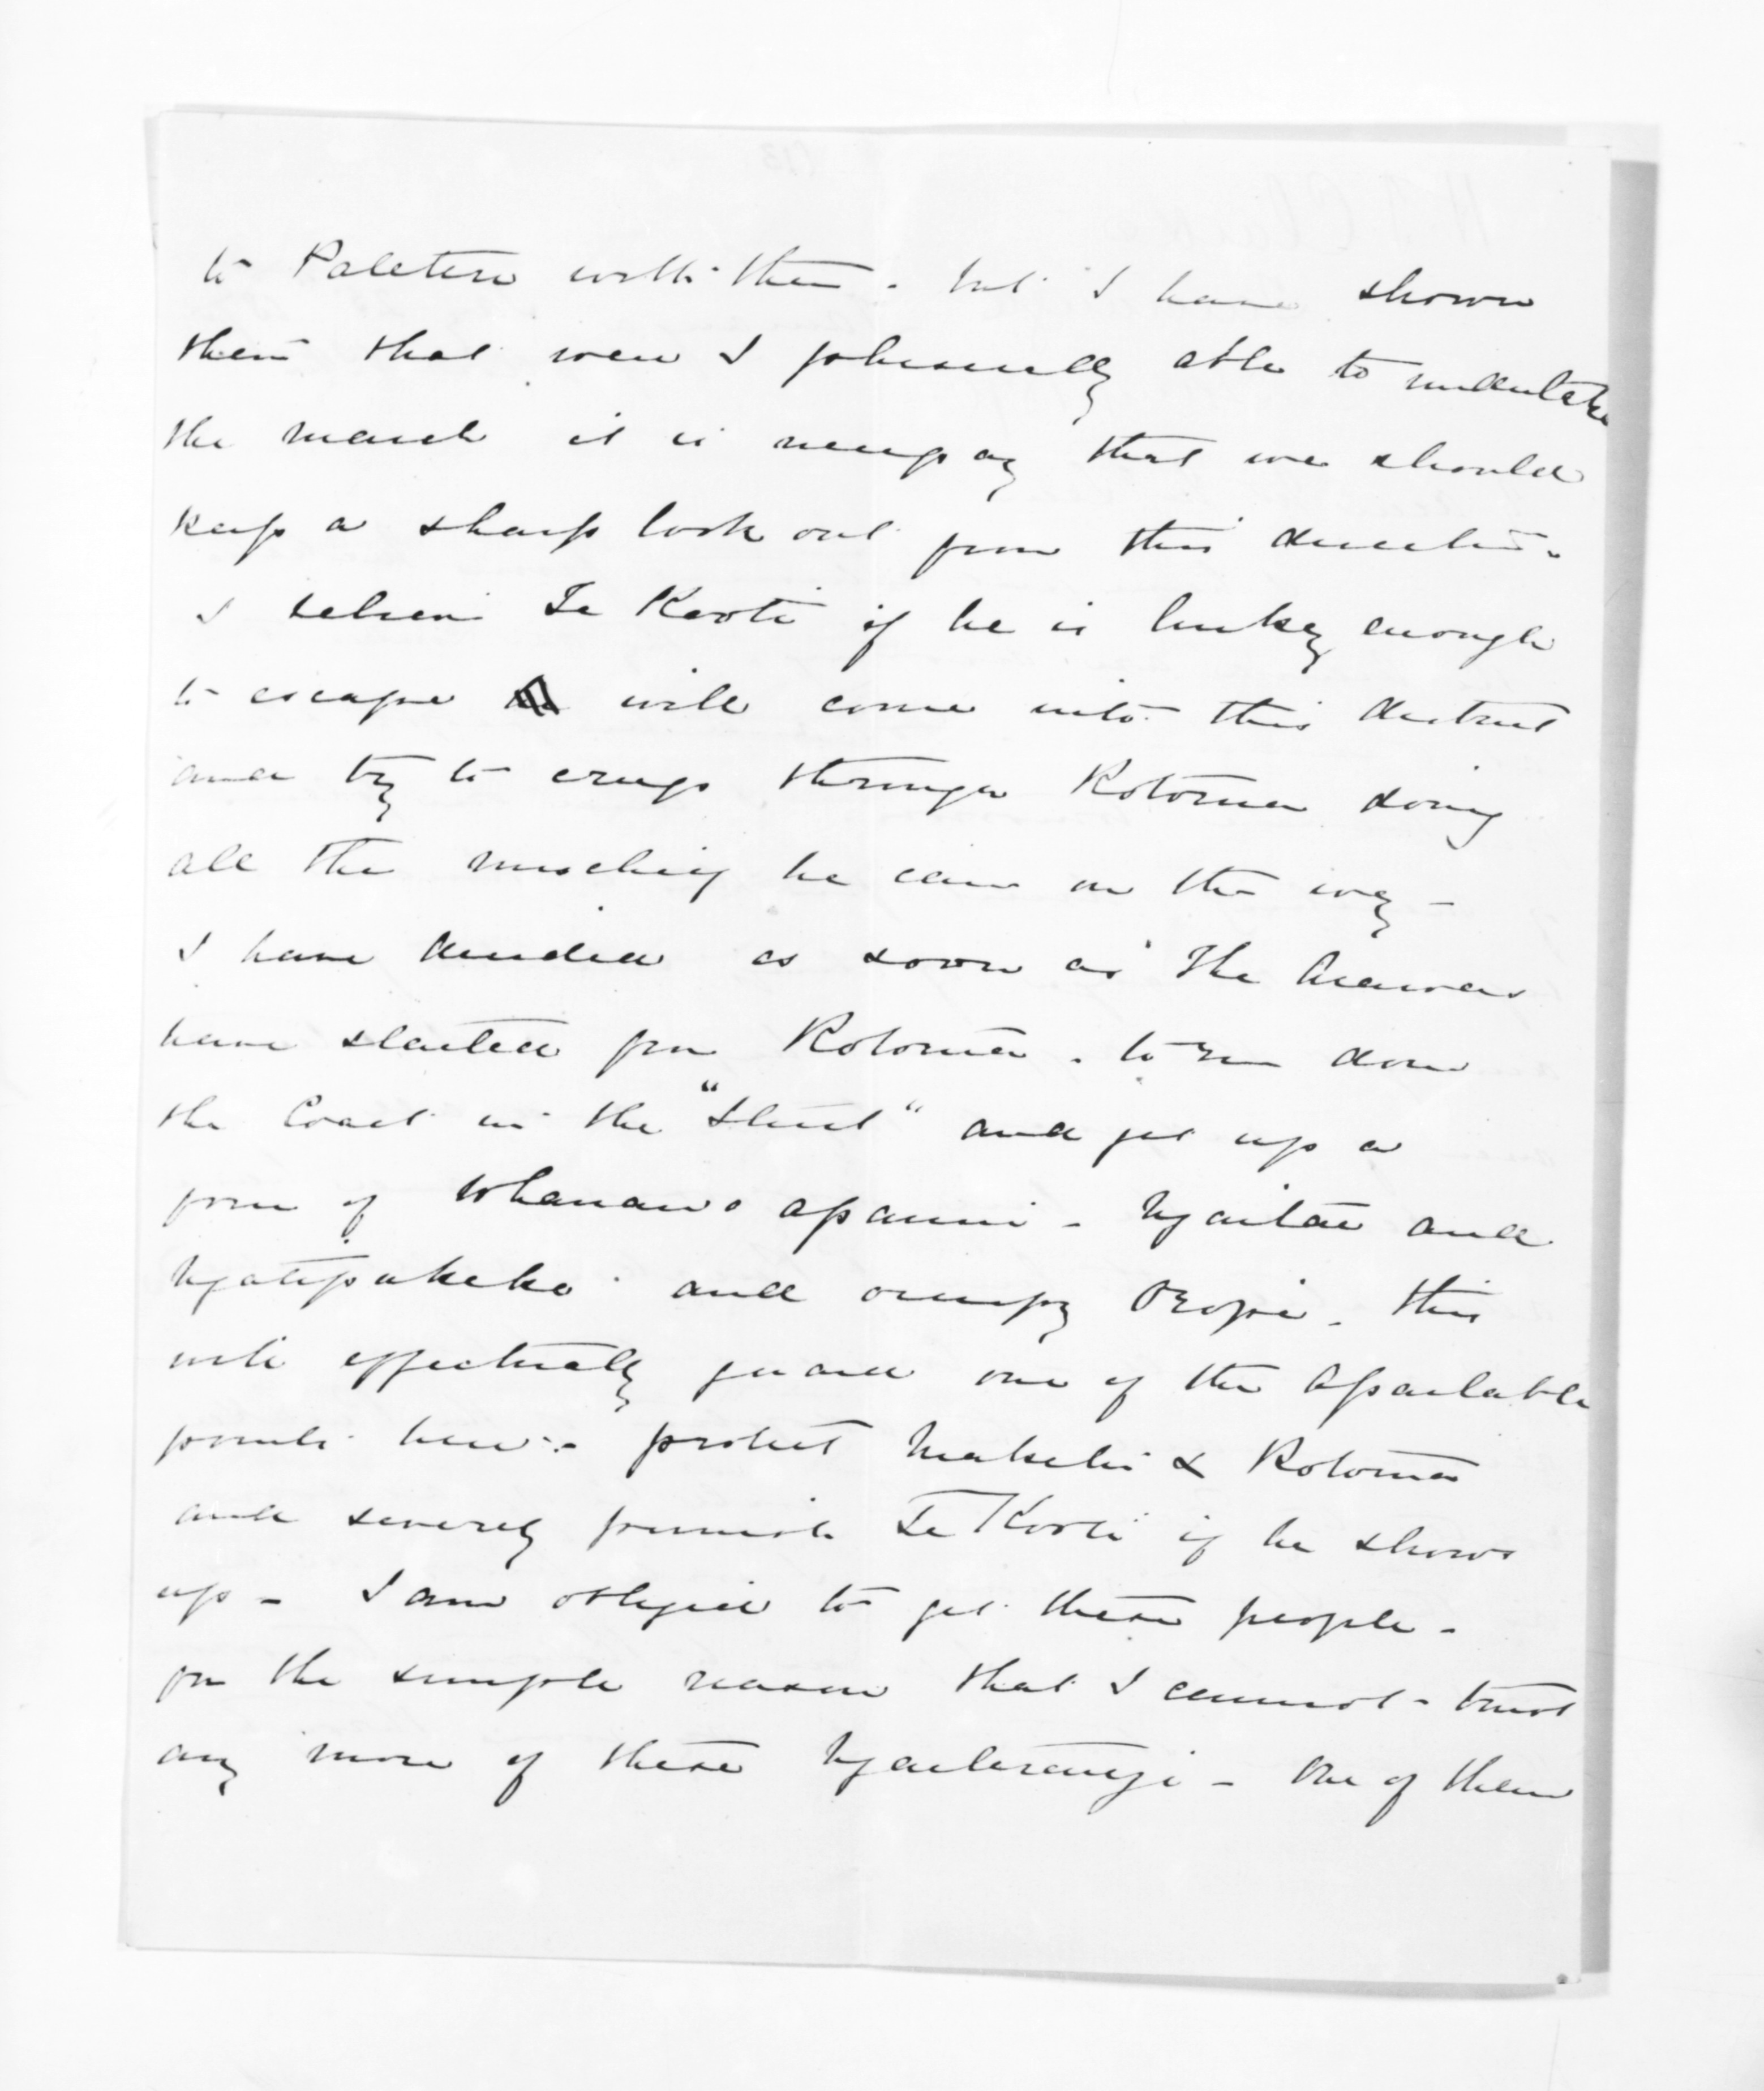 to Patetere with them. but I have shown
them that were I physically able to undertake
the march it is necessary that we should
keep a sharp look out from this direction.
I believe Te Kooti if he is lucky enough
to escape will come into this district
and try to creep through Rotorua doing
all the mischief he can on the way -
I have decided as soon as the Arawas
have started from Rotorua. to run down
the Coast in the "Sturt" and get up a
force of Whanau o apanui - Ngaitai and
Ngatipukeko and occupy Oropi. this
will effectually guard one of the assailable
points here - protect Maketu & Rotorua
and severely punish Te Kooti if he shows
up - I am obliged to get these people -
for the simple reason that I cannot trust
any more of these Ngaiterangi - One of them